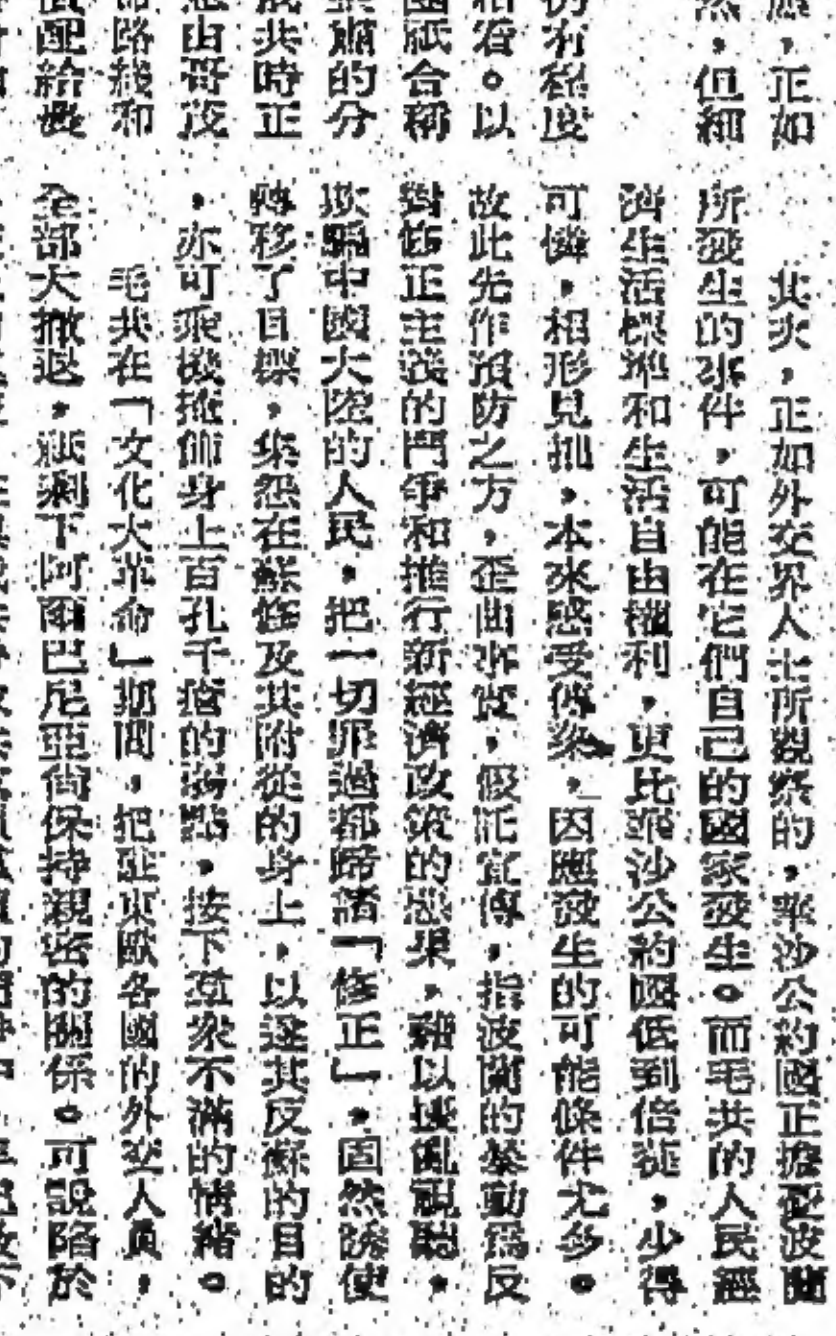 應，正如
然，但細
仍有程度
相若。以
國祇合稱
肅的分
共時正
由哥茂
路綫和
配給

其次，正如外交界人士所觀察的，華沙公約國正擔憂波蘭
所發生的事件，可能在它們自己的國家發生。而毛共的人民經
濟生活標準和生活自由權利，更比華沙公約國低到倍蓰，少得
可憐，相形見拙，本來感受傳染，因應發生的可能條件尤多。
故此先作預防之方，歪曲事實，假託宣傳，指波蘭的暴動爲反
對修正主義的鬥爭和推行新經濟政策的惡果，藉以擾亂視聽，
欺騙中國大陸的人民，把一切罪過都歸諸「修正」，固然誘使
轉移了目標，集怨在蘇修及其附從的身上，以遂其反蘇的目的
，亦可乘機掩飾身上百孔千瘡的弱點，按下羣衆不滿的情緒。
毛共在「文化大革命」期間，把駐東歐各國的外交人員，
全部大撤退，祇剩下阿爾巴尼亞尙保持親密的關係。可說陷於